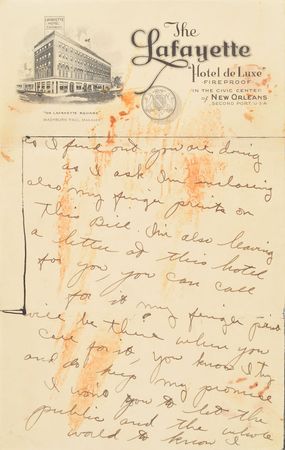 LAFAYETTE
HOTEL
The
Lafayette
Hotel de Luxe
FIREPROOF
IN THE CIVIC CENTER
of NEW ORLEANS
SECOND PORT U.S.A.
"ON LAFAYETTE SQUARE"
MANAGER
to I find out you are doing
as I ask Im inclosing
also my finger prints on
This Bill. Im also leaving
a letter at this hotel
for you you can call
for it my finger prints
will be there when you
call for it, you know I try
and do keep my promise
I want you to let the
public and the whole
world to know I